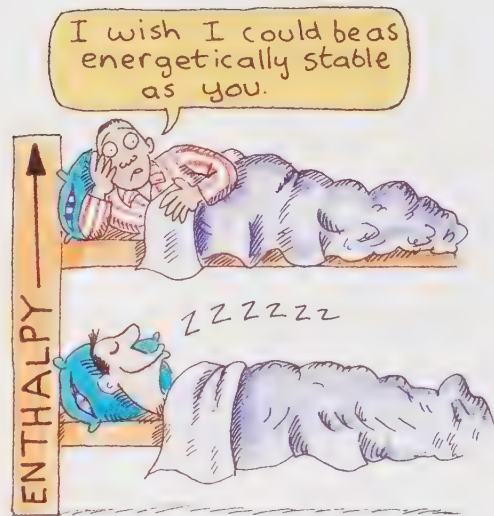 I wish I could be as
energetically stable
as you.
ENTHALPY
zzzzzzz